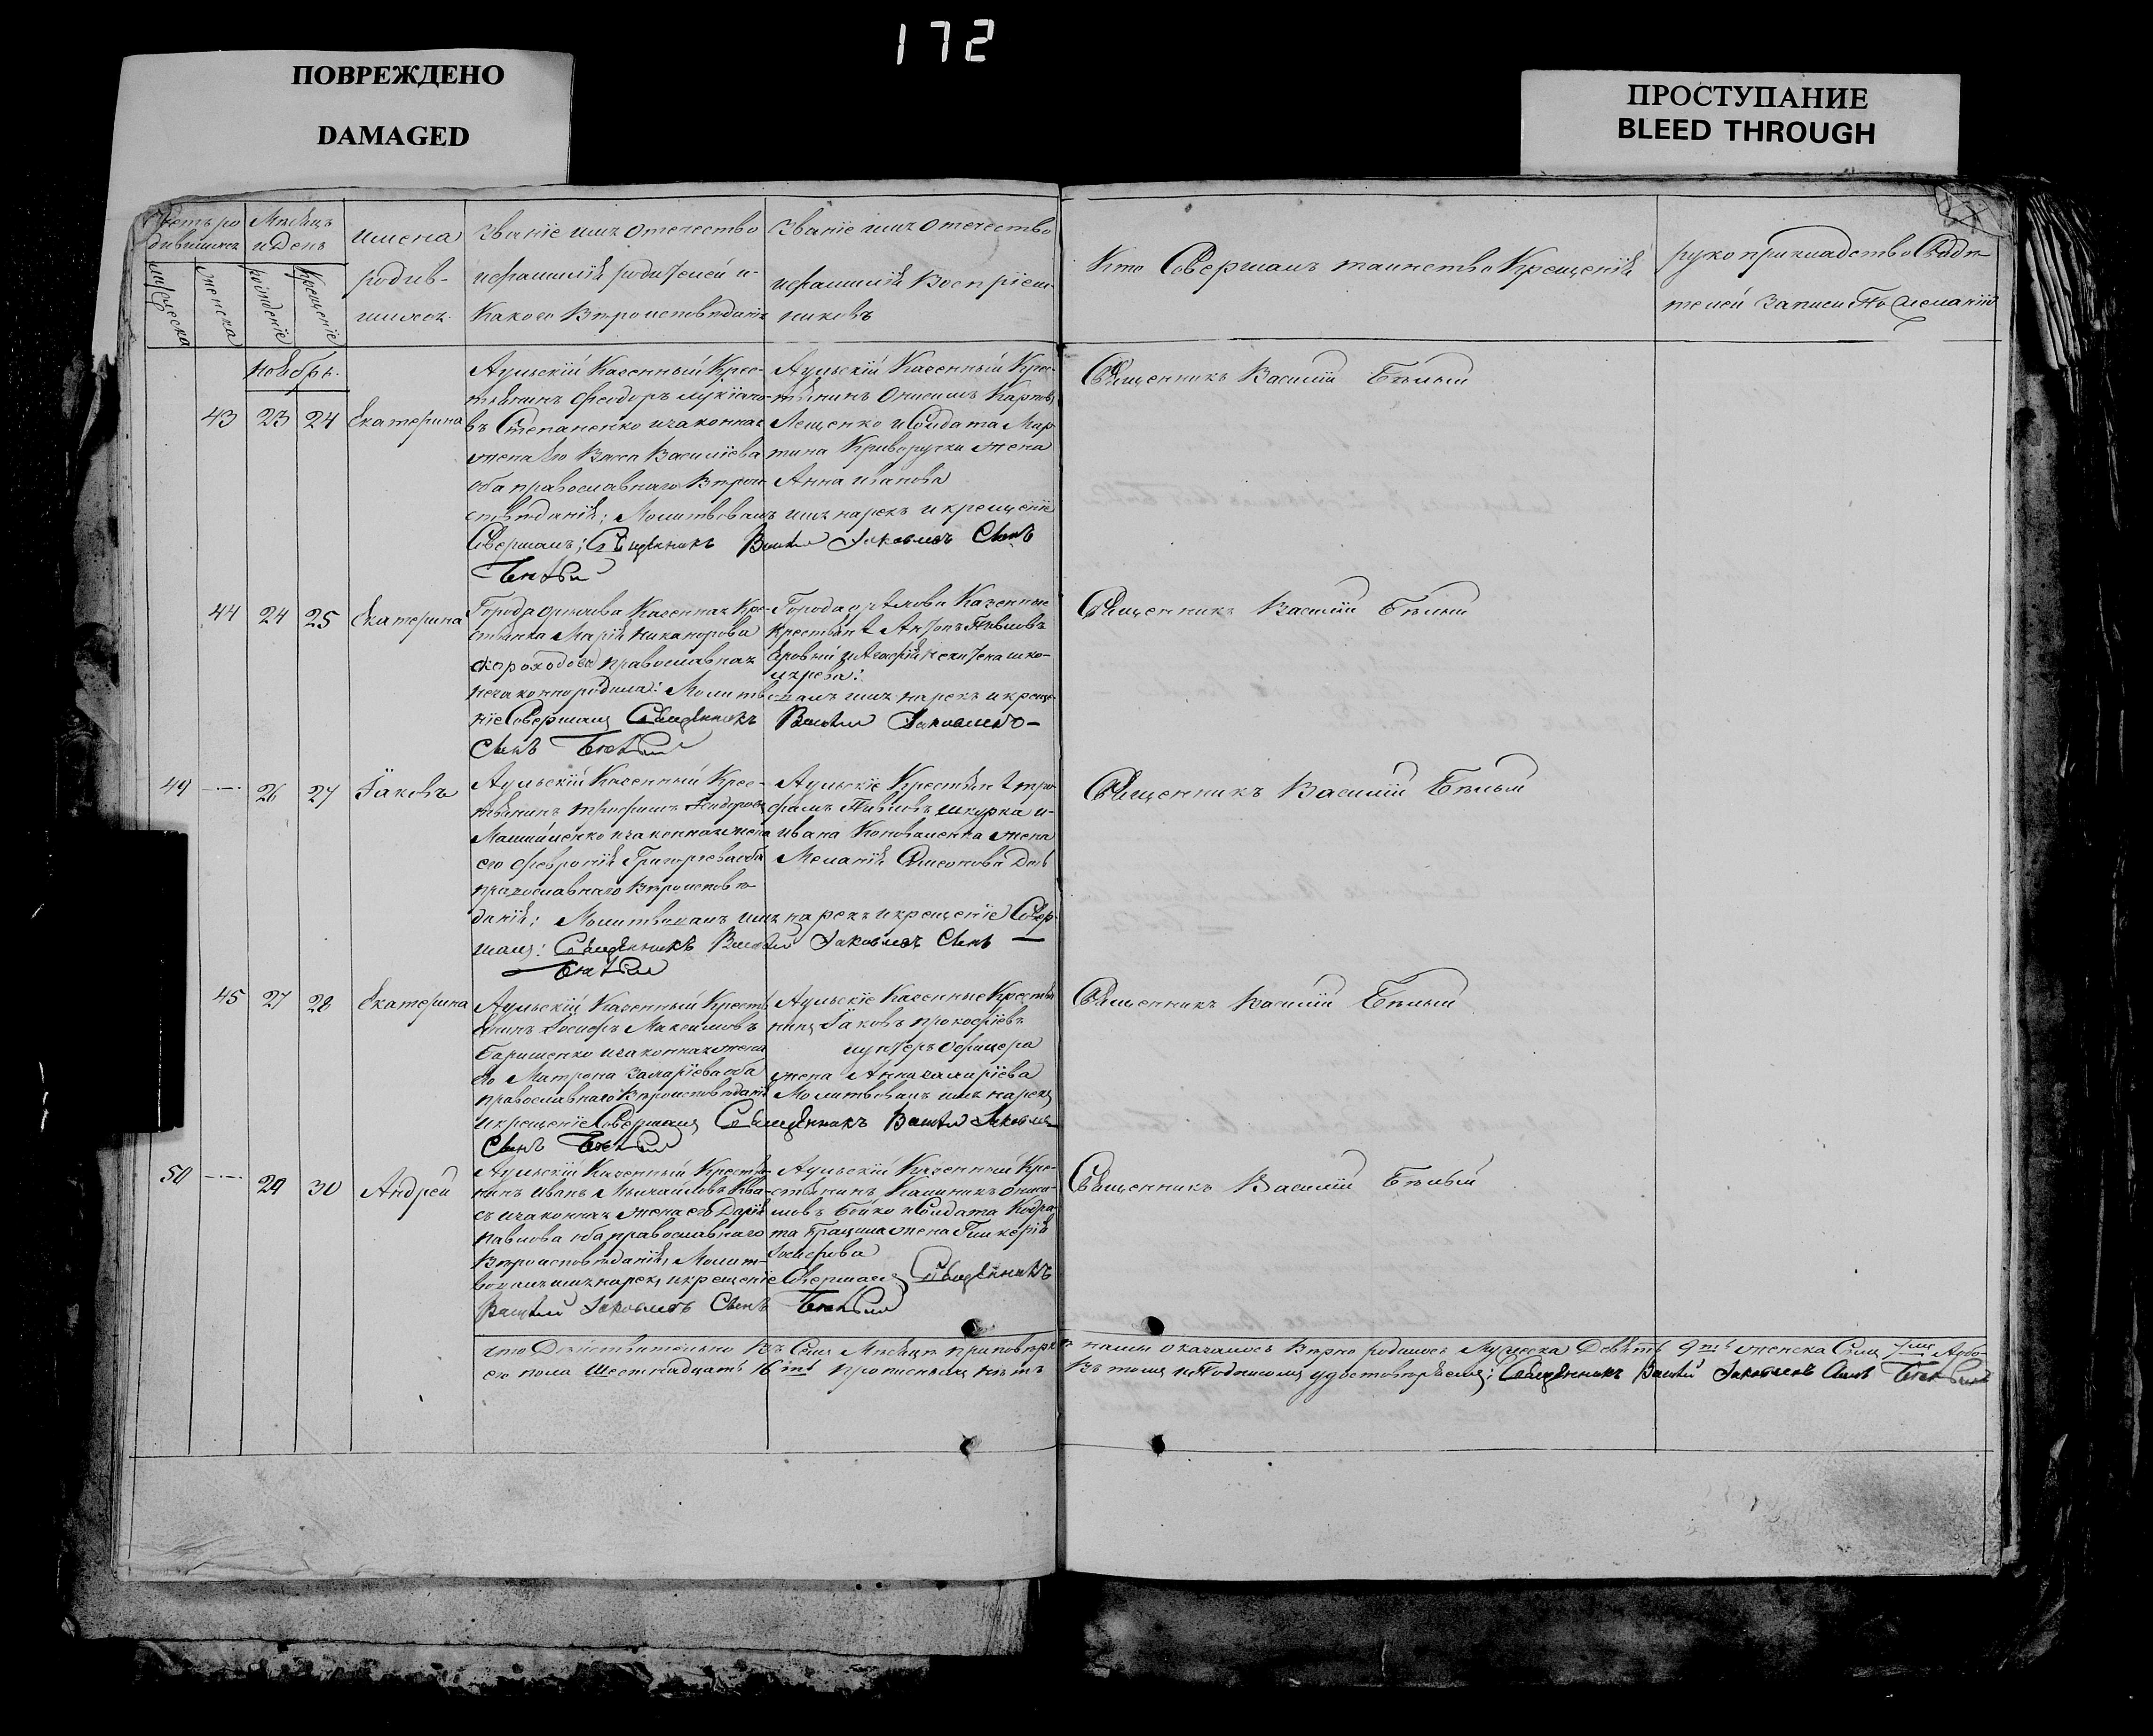 172
ПОВРЕЖДЕНО
DAMAGED
ПРОСТУПАНИЕ
BLEED THROUGH
Мѣсяцъ
и День
имена
родив-
шихся
Званїе имя отечество
ифамилїя родителей и
Какого Вѣроисповѣданїя
Званїе имя отечество
ифамилїя Воспрїем-
никовъ
Кто Совершалъ таинство Крещенїя
рукоприкладство Свидѣ
телей записи По желанїю
мужеска
женска
рожденїе
Крещенїе
ноябрь.
43 23 24 Екатерина
Аульскїй Казенный Крес-
тьянинъ Феодоръ Лукїано-
въ Степаненко изаконная
жена его Васса Василїева
оба православнаго Вѣрои
сповѣданїя; Молитвовалъ имя нарекъ и крещенїе
Совершалъ; Священникъ Василїй Іаковлевъ Сынъ
Бѣлый
Аульскїй Казенный Крес-
тьянинъ Онисимъ Карповъ
Лещенко иСолдата Мар
тина Криворучки жена
Анна иванова
Священникъ Василїй Бѣлый
44 24 25 Екатерина
Города Орѣхова Казенная Кре-
стьянка Марїя никанорова
скороходова православная
незаконнородила: Молитвовалъ имя нарекъ икреще-
нїе Совершалъ Священникъ Василїй Іаковлевъ
Сынъ Бѣлый
Города орѣхова Казенные
крестьяне Антонъ Павловъ
Священникъ Василїй Бѣлый
49 26 27 Їаковъ
Аульскїй Казенный Крес-
тьянинъ трофимъ Феодоровъ
изаконная жена
его Февронїя Григорїева оба
православнаго Вѣроисповѣ
данїя; Молитвовалъ имя нарекъ икрещенїе Совер-
шалъ: Священникъ Василїй Іаковлевъ Сынъ
Бѣлый
Аульскїе Крестьяне тро
фимъ Павловъ шкурка и
ивана Коноваленка жена
Меланїя
Священникъ Василїй Бѣлый
45 27 28 Екатерина
Аульскїй Казенный Кресть
янинъ Іосифъ Максимовъ
изаконная жена
его Матрона Захарїева оба
православнаго Вѣроисповѣданїя Молитвовалъ имя нарекъ
икрещенїе Совершалъ Священникъ Василїй Іаковлевъ
Сынъ Бѣлый
Аульскїе Казенные Крестья
нинъ Їаковъ прокофїевъ
иунтеръ офицера
жена Анна
Священникъ Василїй Бѣлый
50 29 30 Андрей
Аульскїй Казенный Крестья-
нинъ иванъ Михайловъ Ква-
съ изаконная жена его Дарїя
Павлова оба православнаго
Вѣроисповѣданїя, Молит-
вовалъ имя нарекъ икрещенїе Совершалъ Священникъ
Василїй Іаковлевъ Сынъ Бѣлый
Аульскїй Казенный Кре-
стьянинъ Калиникъ
Бойко иСолдата Кодра
та жена Гликерїя
Іосифова
Священникъ Василїй Бѣлый
что Дѣйствительно Въ Семъ Мѣсяцѣ приповѣркѣ нами оказалось Вѣрно родилось Мужеска Девять 9ть женска Семь 7мь Аобо-
его пола Шестнадцать 16ть прописныхъ нѣтъ Въ томъ иПодписомъ удостовѣряемъ: Священникъ Василїй Іаковлевъ Сынъ Бѣлый